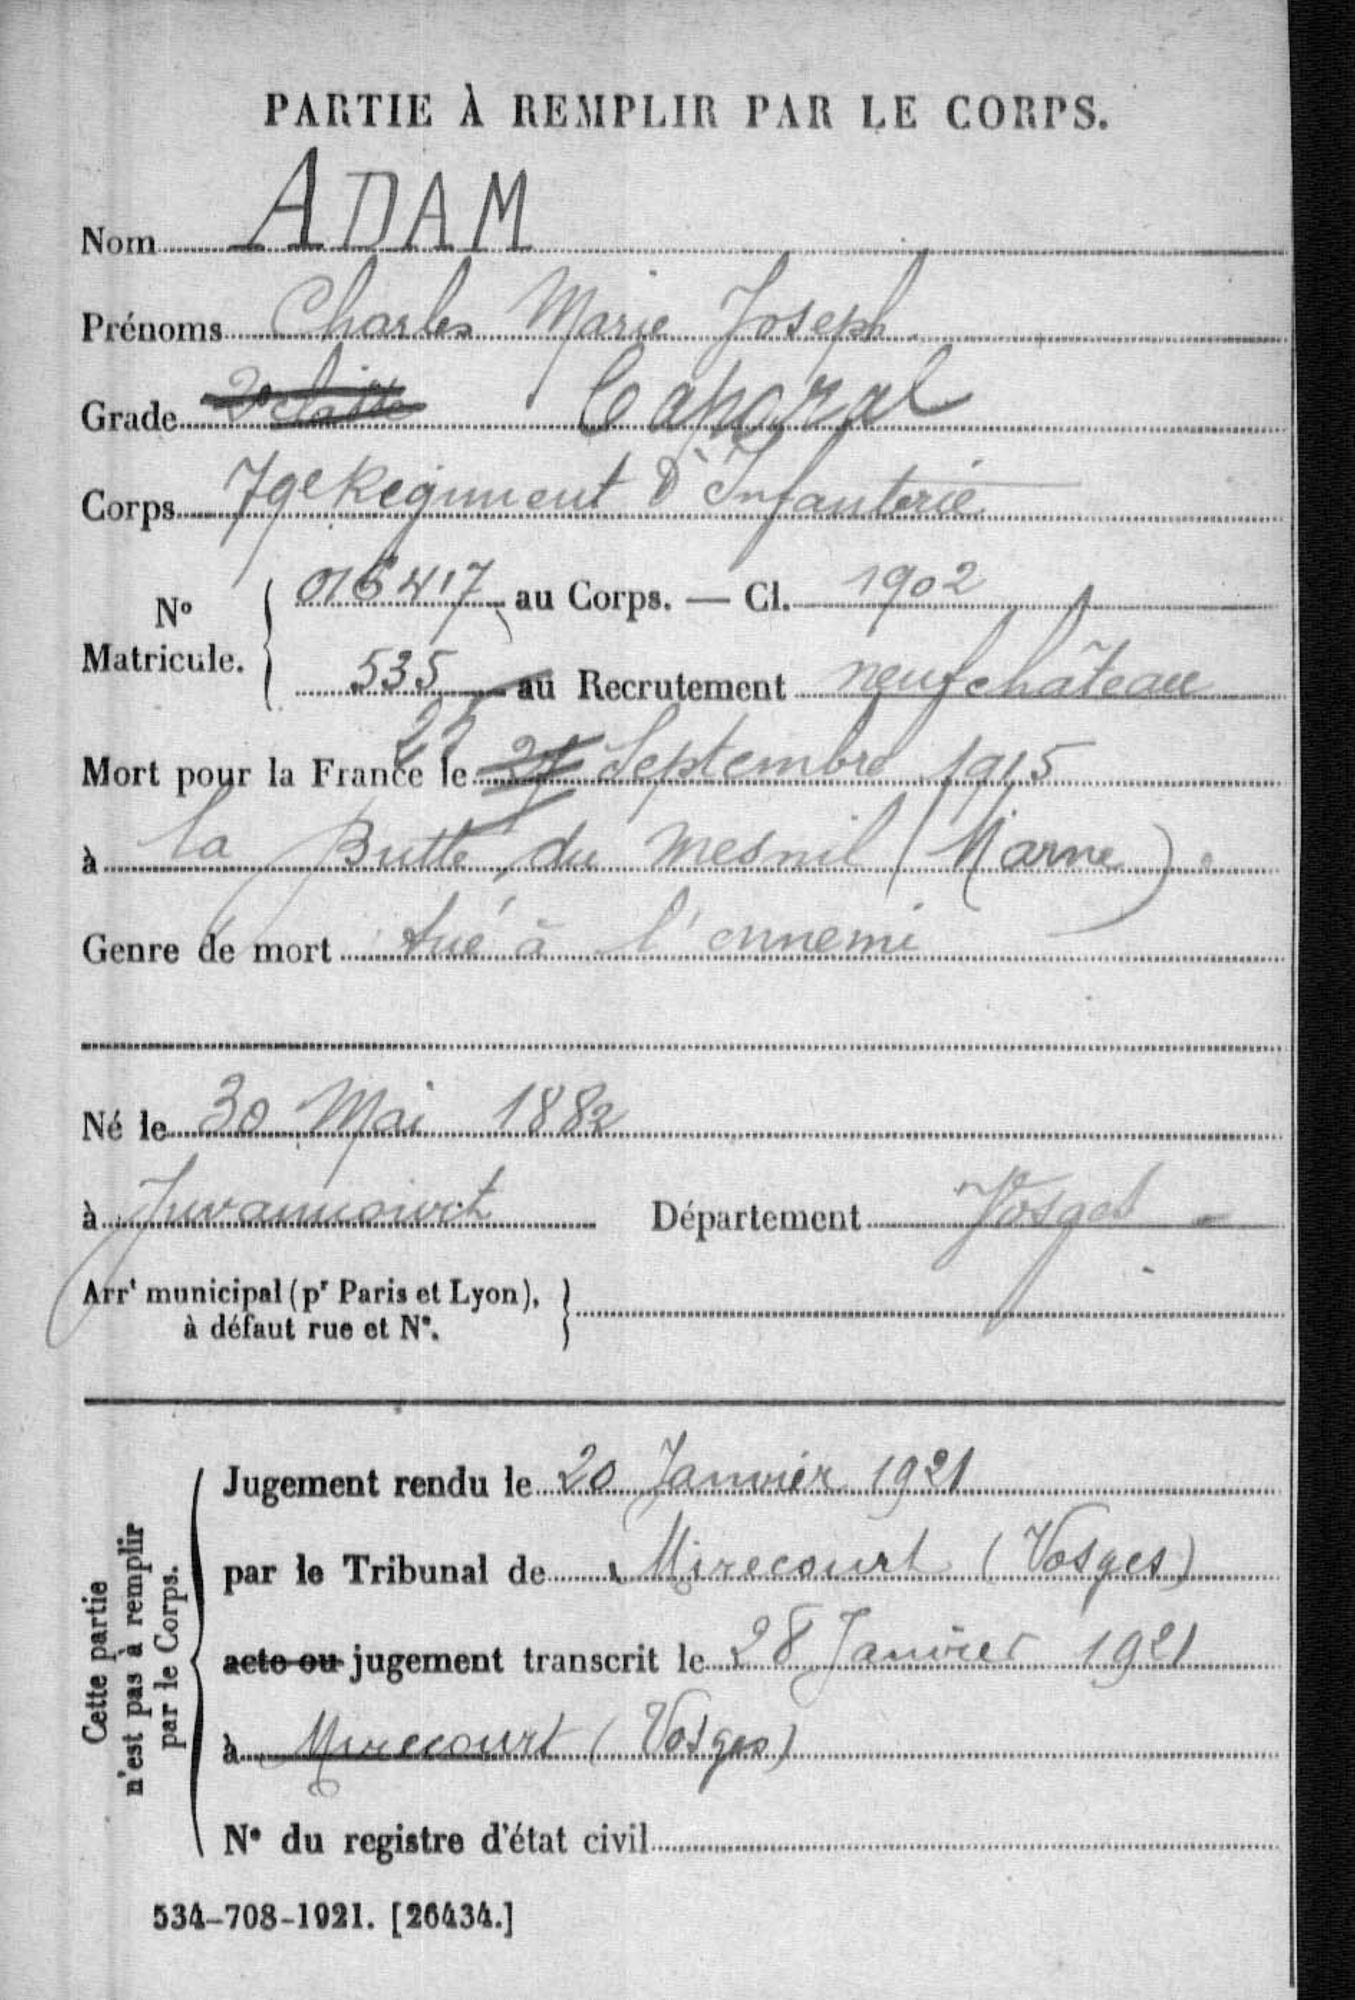 PARTIE À REMPLIR PAR LE CORPS.
Nom ADAM
Prénoms Charles Marie Joseph
Grade 2e classe Caporal
Corps 79e Régiment D'Infanterie
N° Matricule. 016417 au Corps. — Cl. 1902
535 au Recrutement neufchâteau
Mort pour la France le 25 Septembre 1915
à la Butte du mesnil (Marne).
Genre de mort tué à l'ennemi
Né le 30 Mai 1882
à Juvaincourt Département Vosges
Arrt municipal (pr Paris et Lyon),
à défaut rue et N°.
Cette partie
n'est pas à remplir
par le Corps.
Jugement rendu le 20 Janvier 1921
par le Tribunal de Mirecourt (Vosges)
acte ou jugement transcrit le 28 Janvier 1921
à Mirecourt (Vosges)
N° du registre d'état civil
534-708-1921. [26434.]